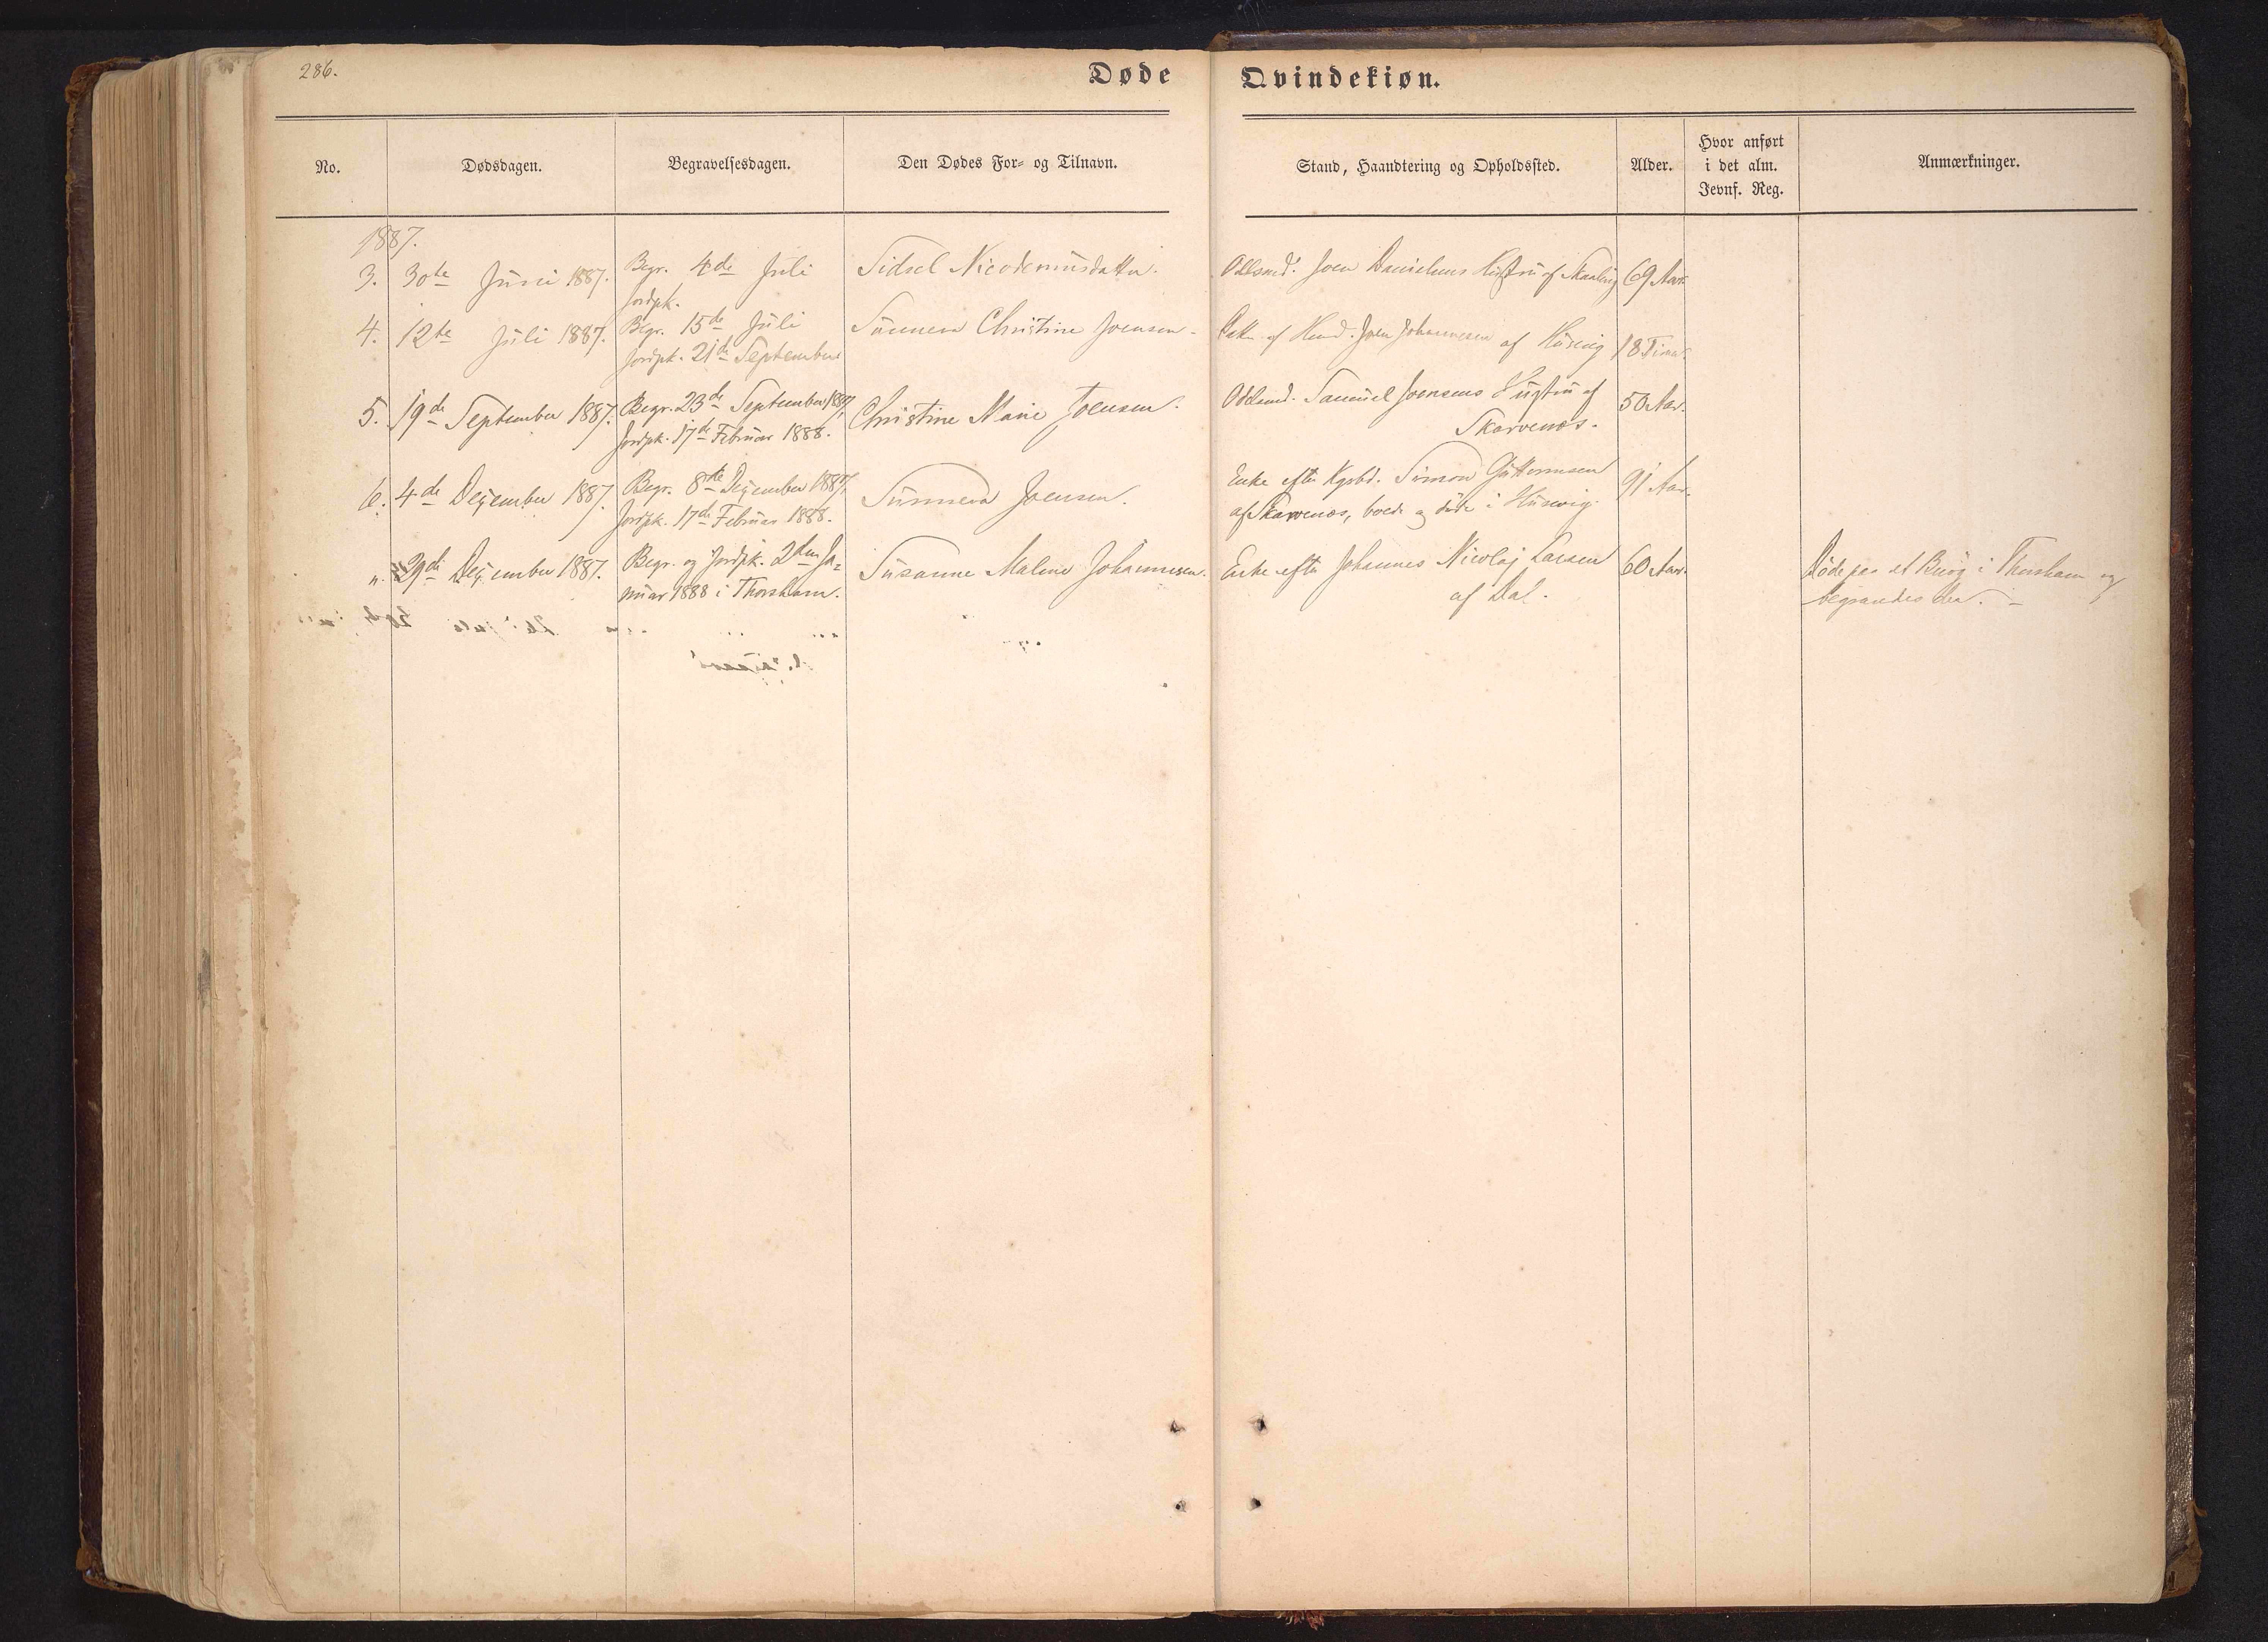 286.
Døde Qvindekiøn.
No. Dødsdagen. Begravelsesdagen. Den Dødes For- og Tilnavn. Stand, Haandtering og Opholdssted. Alder. Hvor anført i det alm. Jevnf. Reg. Anmærkninger.
1887.
3. 30te Juni 1887. Begr. 4de Juli Sidsel Nicodemusdatter. Odelsmd. Joen Danielsens Hustru af Skaalevig 69 Aar.
Jordpk.
4. 12te Juli 1887. Begr. 15de Juli Sunneva Christine Joensen Datter af Joen Johannesen af Húsevig 18 Timer.
Jordpk. 21de September
5. 19de September 1887. Begr. 23de September 1887, Christine Marie Joensen. Odelsmd. Samúel Joensens Hústrú af 50 Aar.
Jordpk. 17de Februar 1888. Skarvenæs.
6. 4de December 1887. Begr. 8de December 1887, Sunneva Joensen. Enke efter Kgsbd. Simon Guttormsen 91 Aar.
Jordpk. 17de Februar 1888. af Skarvenæs, boede og døde i Húsevig.
29de December 1887. Begr. og Jordpk. 2den Ja- Susanne Malene Johannesen. Enke efter Johannes Nicolaj Larsen 60 Aar. Døde paa et Besøg i Thorshavn og
nuar 1888 i Thorshavn. af Dal. begravedes der. —